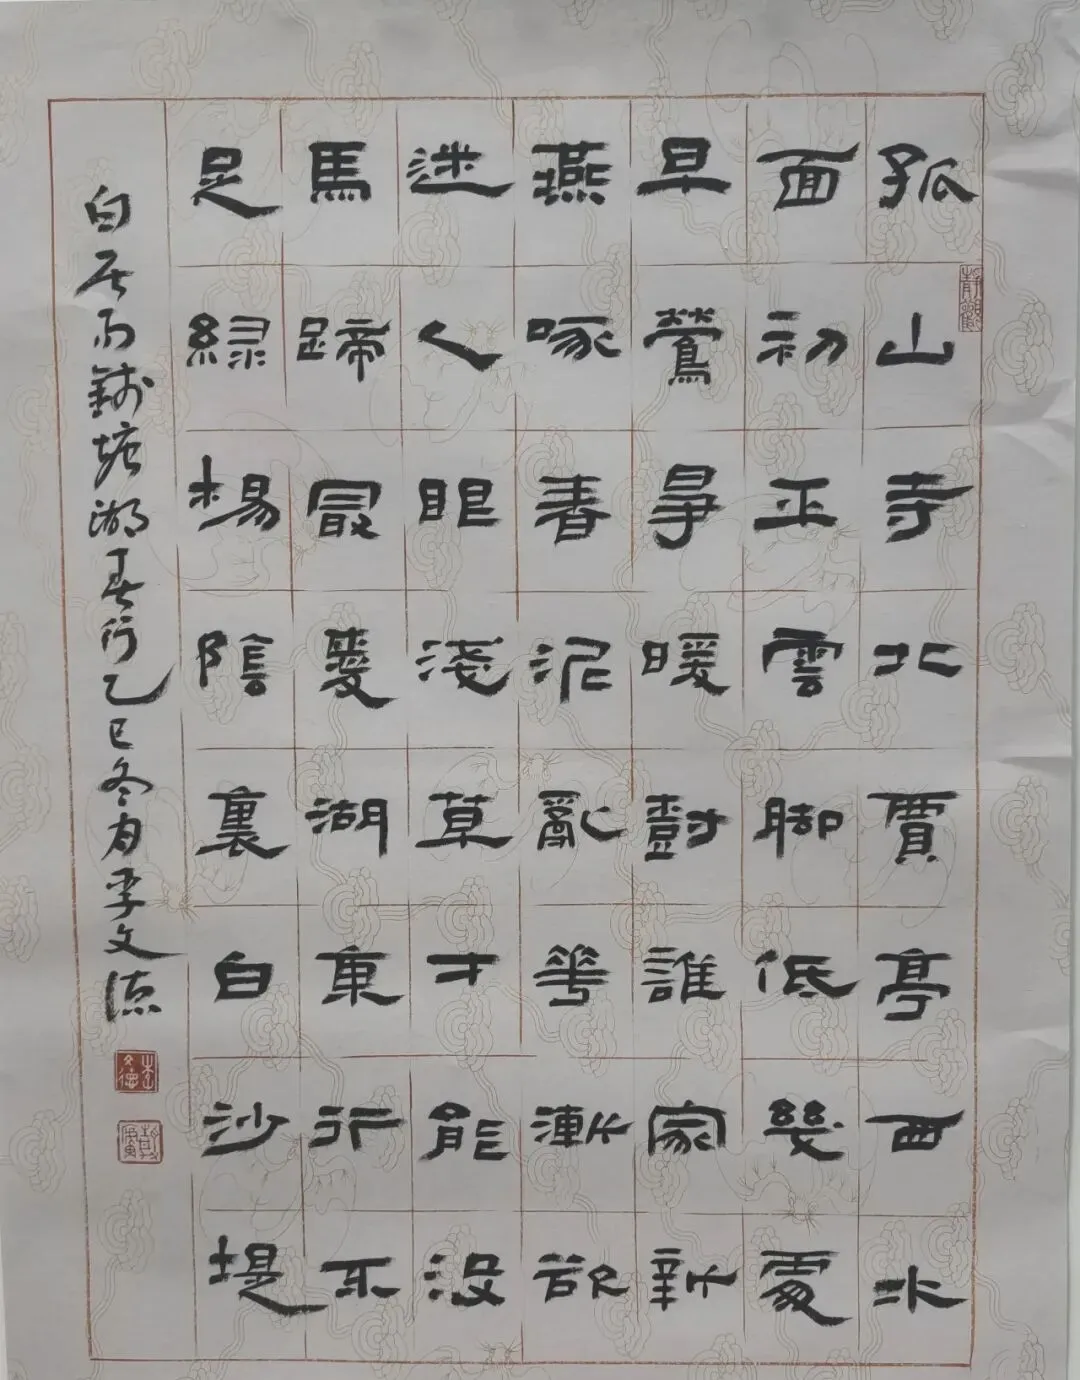 孤山寺北賈亭西水
面初平雲脚低幾處
早鶯爭暖樹誰家新
燕啄春泥亂華漸欲
迷人眼淺草才能沒
馬蹄最愛湖東行不
足綠楊陰裏白沙堤
白居易錢塘湖春行乙巳冬月李文德
靜觀
李文德